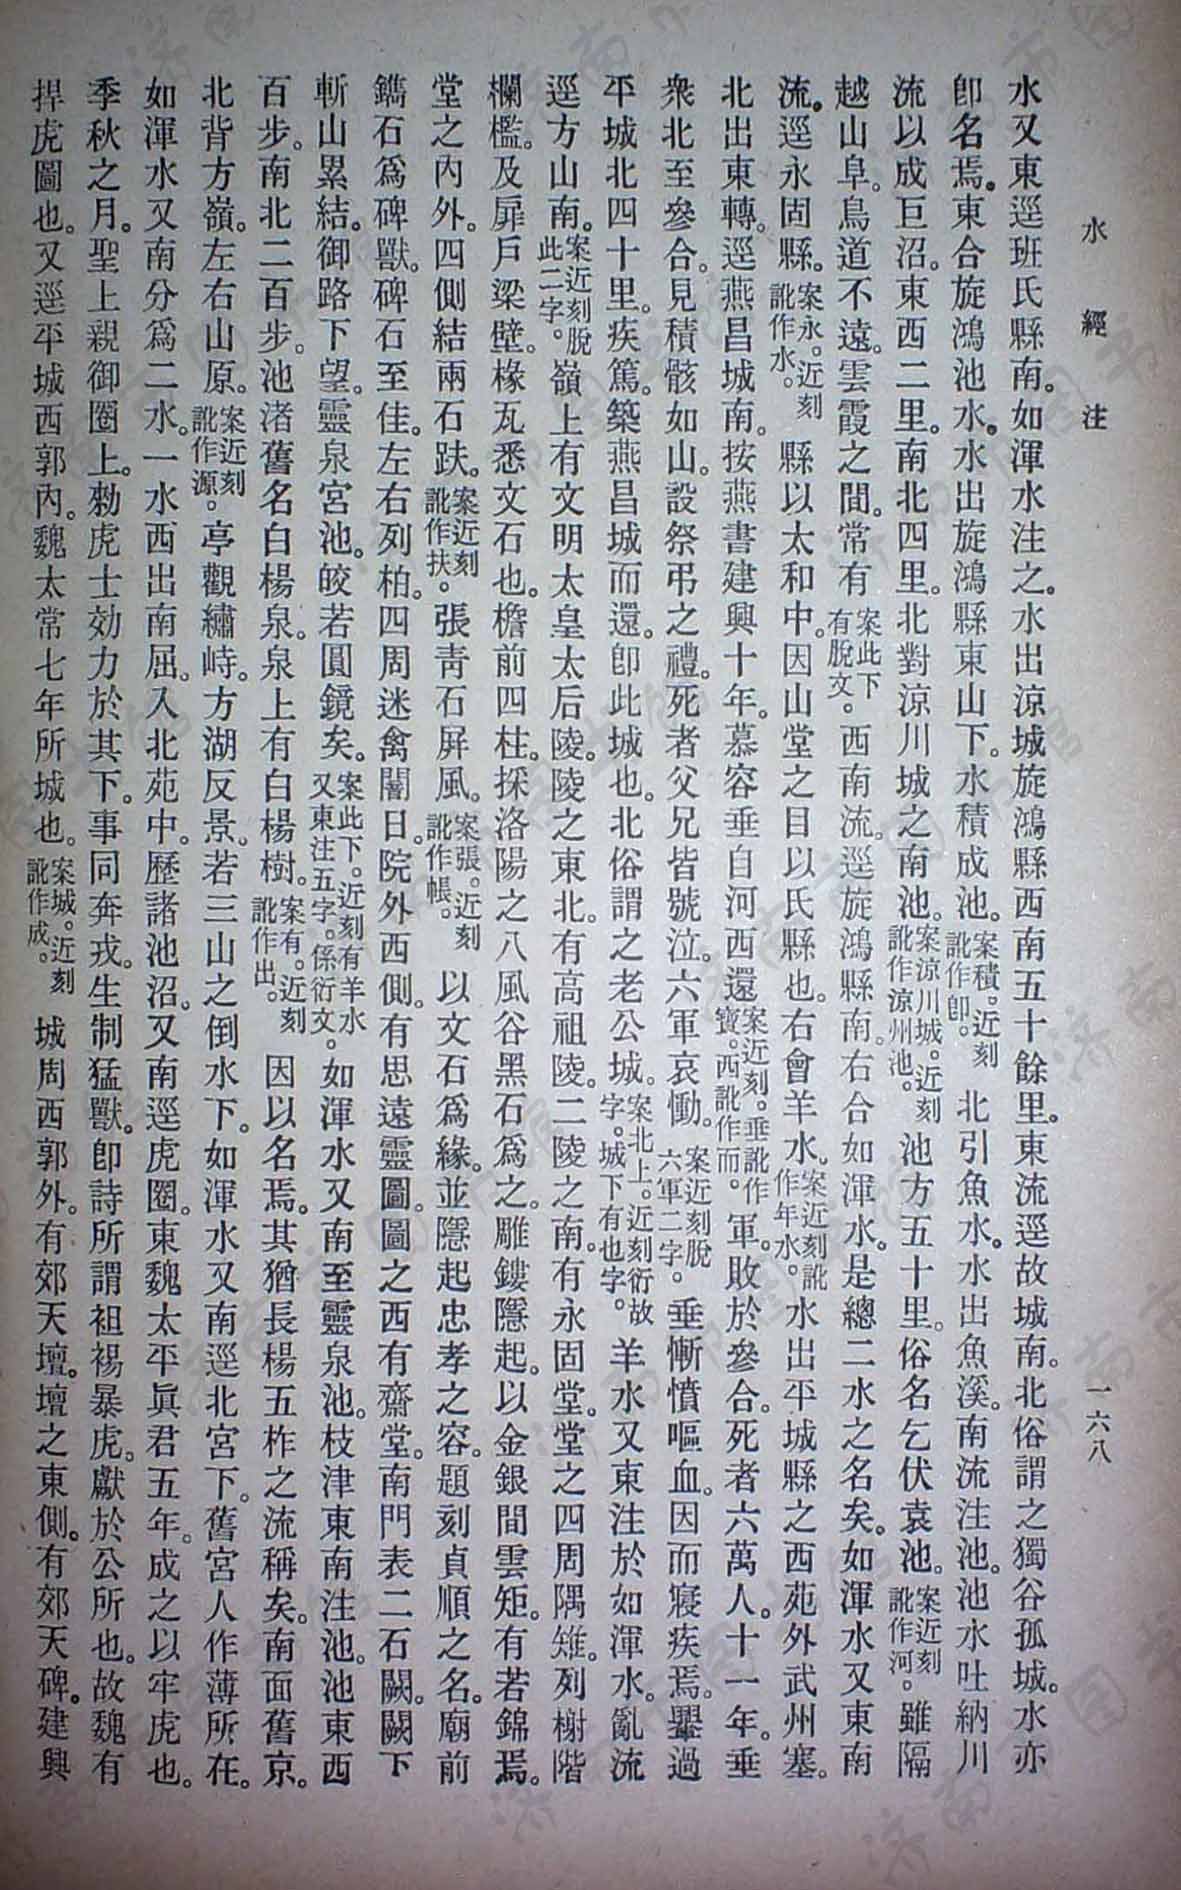 水經注
一六八
水又東逕班氏縣南。如渾水注之。水出涼城旋鴻縣西南五十餘里。東流逕故城南。北俗謂之獨谷孤城。水亦
卽名焉。東合旋鴻池水。水出旋鴻縣東山下。水積成池。案積。近刻訛作卽。北引魚水。水出魚溪。南流注池。池水吐納川
流以成巨沼。東西二里。南北四里。北對涼川城之南池。案涼川城。近刻訛作涼州池。池方五十里。俗名乞伏袁池。案近刻訛作河。雖隔
越山阜。鳥道不遠。雲霞之間。常有案此下有脫文。西南流。逕旋鴻縣南。右合如渾水。是總二水之名矣。如渾水又東南
流。逕永固縣。案永。近刻訛作水。縣以太和中。因山堂之目以氏縣也。右會羊水。案近刻訛作年水。水出平城縣之西苑外武州塞。
北出東轉。逕燕昌城南。按燕書建興十年。慕容垂自河西還案近刻。垂訛作寶。西訛作而。軍。敗於參合。死者六萬人。十一年。垂
衆北至參合。見積骸如山。設祭弔之禮。死者父兄皆號泣。六軍哀慟。案近刻脫六軍二字。垂慚憤嘔血。因而寢疾焉。轝過
平城北四十里。疾篤。築燕昌城而還。卽此城也。北俗謂之老公城。案北上。近刻衍故字。城下有也字。羊水又東注於如渾水。亂流
逕方山南。案近刻脫此二字。嶺上有文明太皇太后陵。陵之東北。有高祖陵。二陵之南。有永固堂。堂之四周隅雉。列榭階
欄檻。及扉戶梁壁。椽瓦悉文石也。檐前四柱。採洛陽之八風谷黑石爲之。雕鏤隱起。以金銀間雲矩。有若錦焉。
堂之內外。四側結兩石趺。案近刻訛作扶。張靑石屏風。案張。近刻訛作帳。以文石爲緣。並隱起忠孝之容。題刻貞順之名。廟前
鐫石爲碑獸。碑石至佳。左右列柏。四周迷禽闇日。院外西側。有思遠靈圖。圖之西有齋堂。南門表二石闕。闕下
斬山累結。御路下望。靈泉宮池。皎若圓鏡矣。案此下。近刻有羊水又東注五字。係衍文。如渾水又南至靈泉池。枝津東南注池。池東西
百步。南北二百步。池渚舊名白楊泉。泉上有白楊樹。案有。近刻訛作出。因以名焉。其猶長楊五柞之流稱矣。南面舊京。
北背方嶺。左右山原。案近刻訛作源。亭觀繡峙。方湖反景。若三山之倒水下。如渾水又南逕北宮下。舊宮人作薄所在。
如渾水又南分爲二水。一水西出南屈。入北苑中。歷諸池沼。又南逕虎圈。東魏太平眞君五年。成之以牢虎也。
季秋之月。聖上親御圈上。勑虎士効力於其下。事同奔戎。生制猛獸。卽詩所謂袒裼暴虎。獻於公所也。故魏有
捍虎圖也。又逕平城西郭內。魏太常七年所城也。案城。近刻訛作成。城周西郭外。有郊天壇。壇之東側。有郊天碑。建興